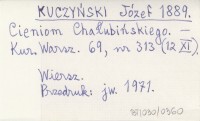 KUCZYŃSKI Józef 1889.
Cieniom Chałubińskiego. –
Kur. Warsz. 69, nr 313 (12 XI).
Wiersz.
Przedruk: jw. 1971.
381030/0360